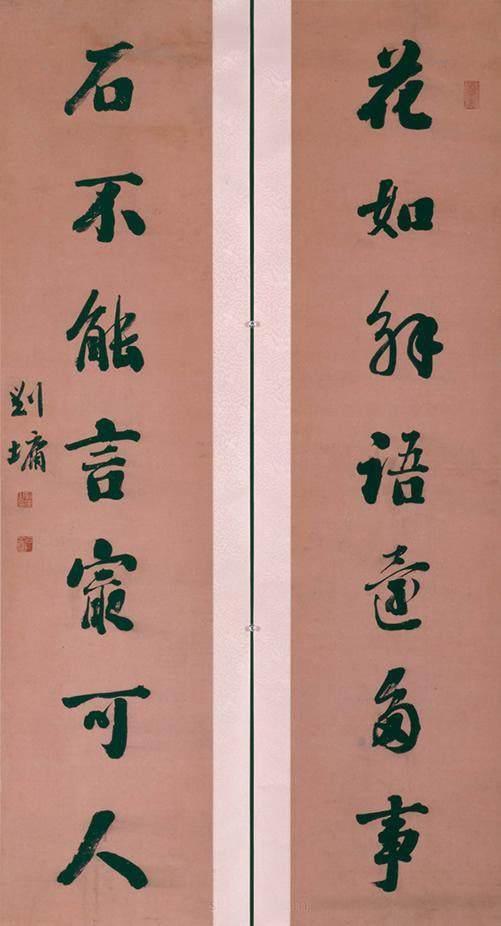 花如解语還多事
石不能言寂可人
劉墉